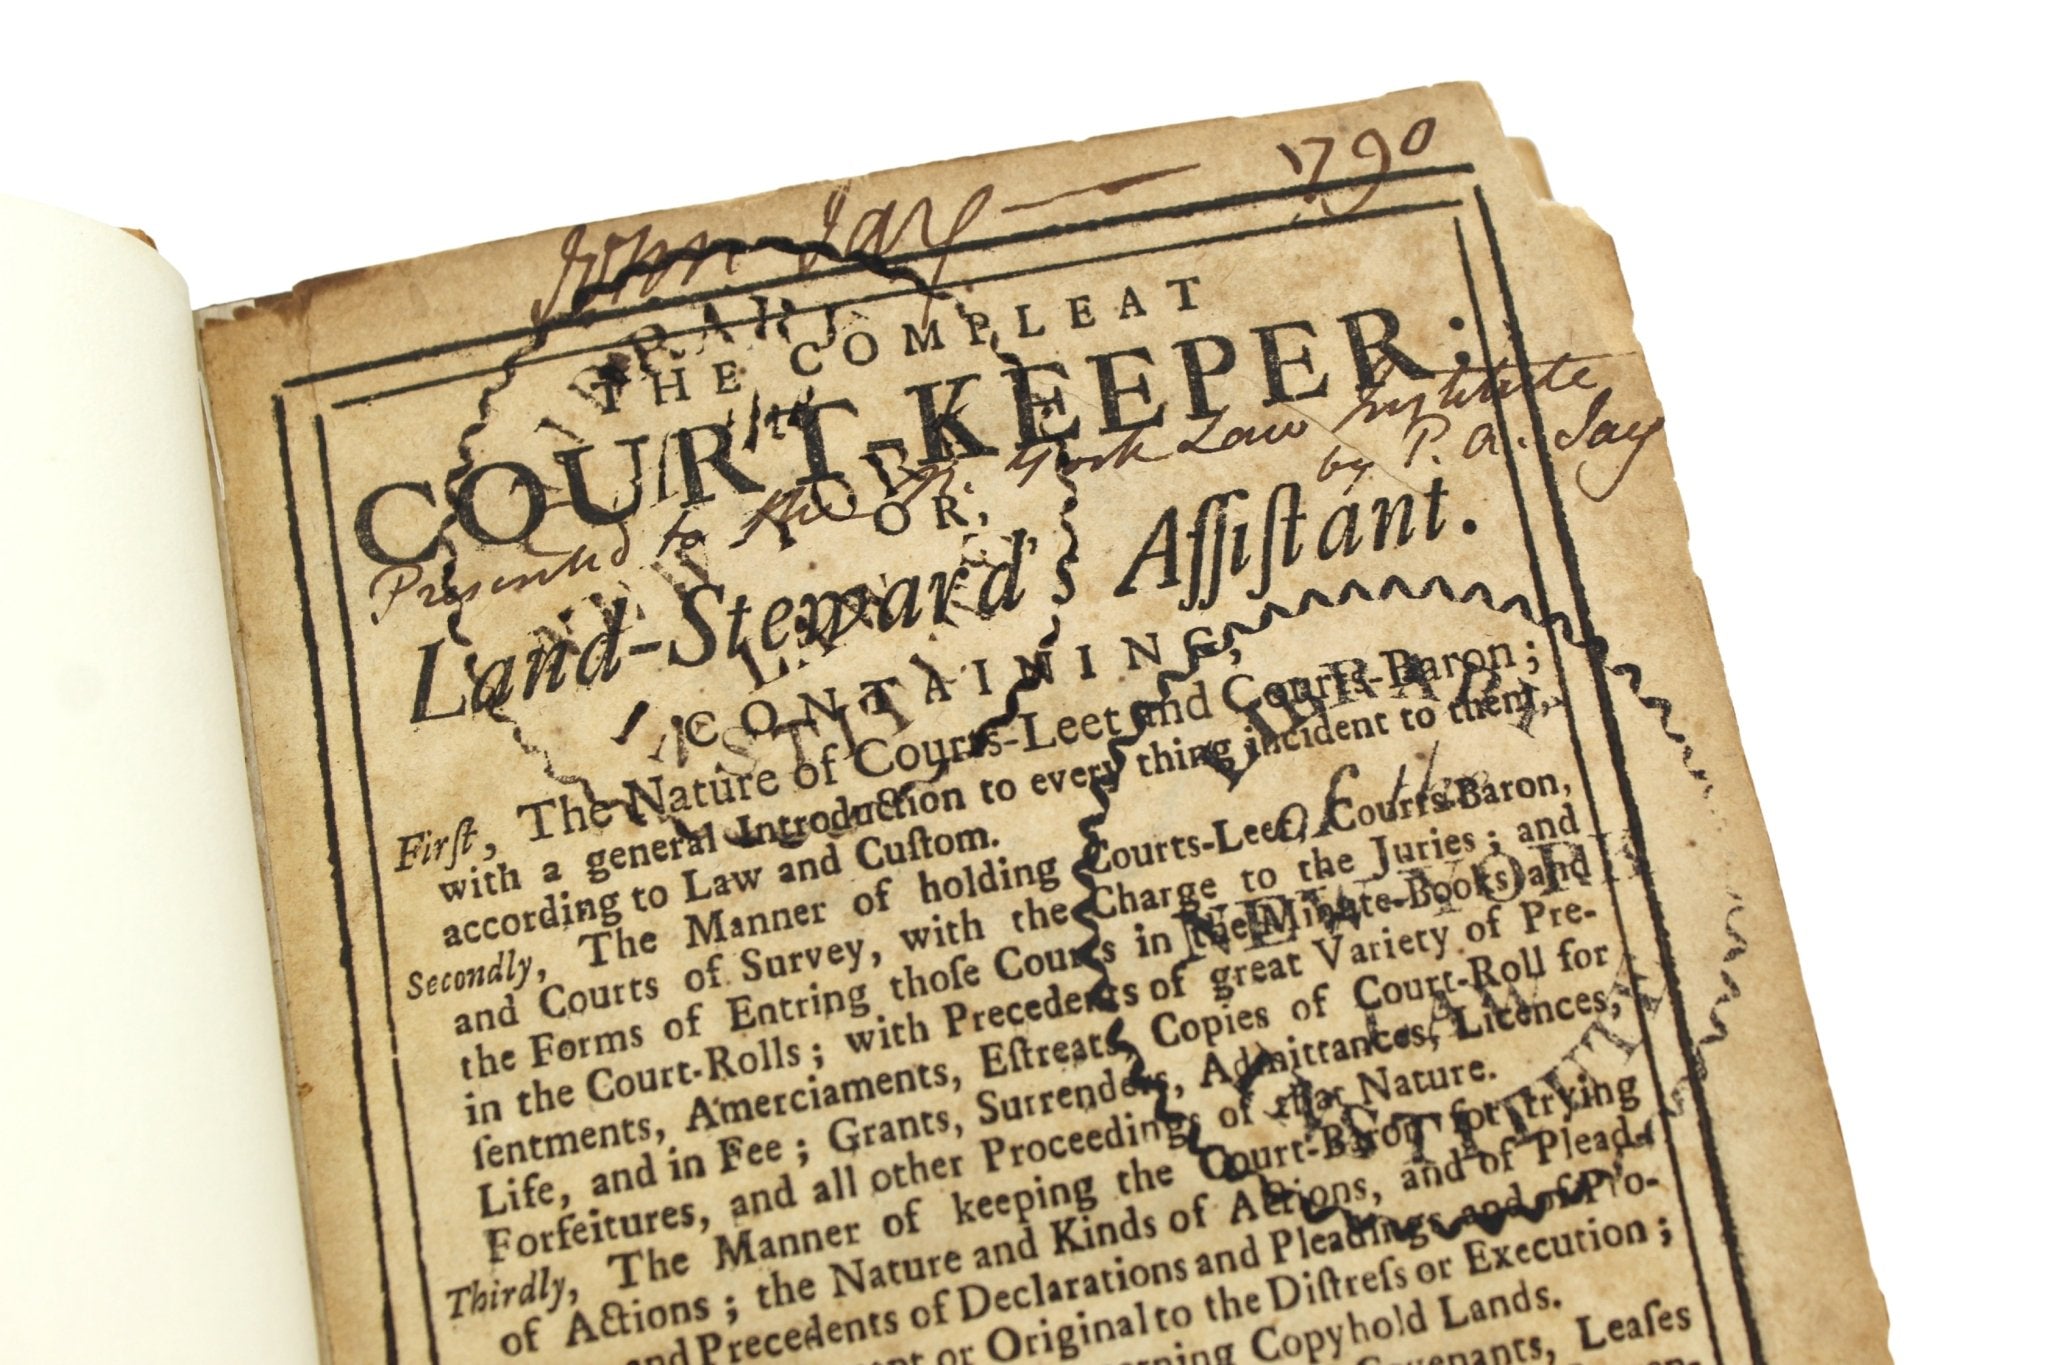 John Jay — 1790
THE COMPLEAT
COURT-KEEPER:
Presented to the N. York Law Institute
by P. A. Jay
OR,
Land-Steward's Aſſiſtant.
CONTAINING,
Firſt, The Nature of Courts-Leet and Courts-Baron;
with a general Introduction to every thing incident to them,
according to Law and Cuſtom.
Secondly, The Manner of holding Courts-Leet, Courts-Baron,
and Courts of Survey, with the Charge to the Juries; and
the Forms of Entring thoſe Courts in the Minute-Books and
in the Court-Rolls; with Precedents of great Variety of Pre-
ſentments, Amerciaments, Eſtreats, Copies of Court-Roll for
Life, and in Fee; Grants, Surrenders, Admittances, Licences,
Forfeitures, and all other Proceedings of that Nature.
Thirdly, The Manner of keeping the Court-Baron for trying
of Actions; the Nature and Kinds of Actions, and of Plead-
and Precedents of Declarations and Pleadings and of Pro-
or Original to the Diſtreſs or Execution;
Copyhold Lands.
Covenants, Leaſes
LIBRARY
of the
NEW YORK
LAW
INSTITUTE
LIBRARY
of the
NEW YORK
LAW
INSTITUTE